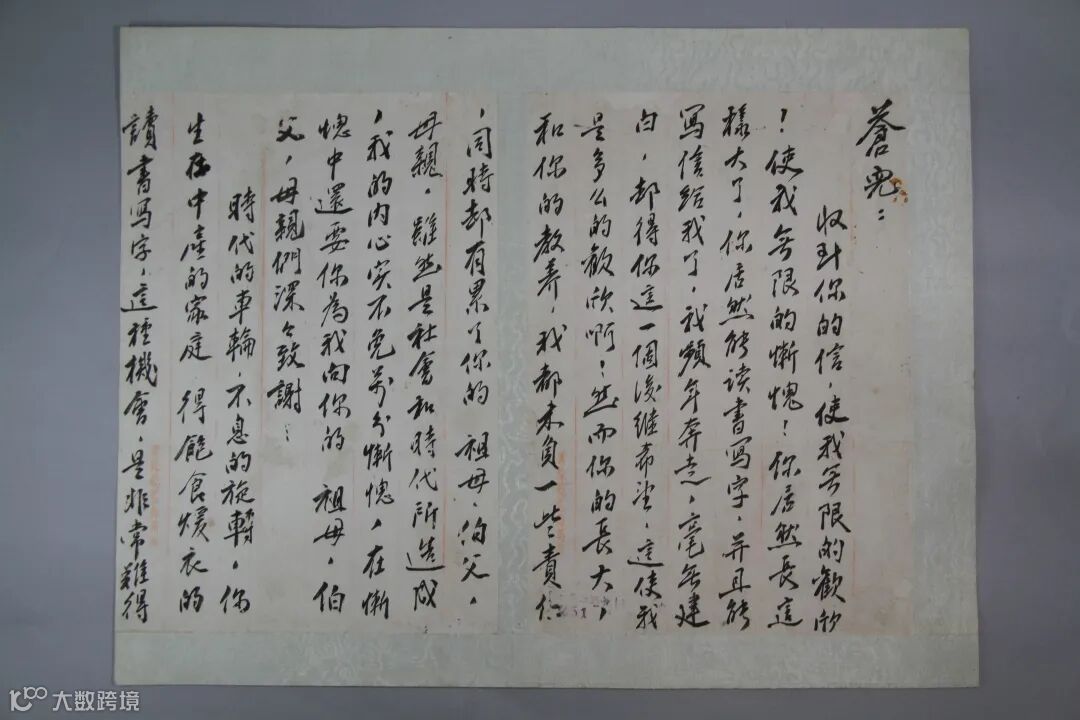 蒼兒：
收到你的信，使我無限的歡欣
！使我無限的慚愧！你居然長這
樣大了，你居然能读書寫字，并且能
寫信給我了，我頻年奔走，毫無建
白，却得你這一個後继希望，這使我
是多么的歡欣啊！然而你的長大，
和你的教养，我都未負一些責任
，同時却有累了你的 祖母，伯父，
母親，雖然是社會和時代所造成
，我的内心实不免萬分慚愧，在慚
愧中還要你為我向你的 祖母，伯
父，母親們深々致謝：
時代的車輪，不息的旋轉，你
生存中產的家庭 得飽食煖衣的
讀書寫字，這種機會，是非常難得
大数跨境